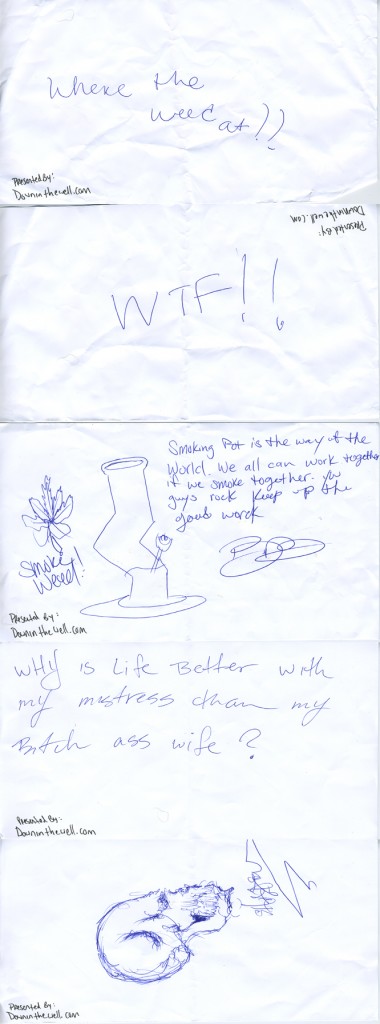 Where the
weed at!!
Presented By:
Downinthewell.com
Presented By:
Downinthewell.com
WTF!!
Smoking Pot is the way of the
World. We all can work together
if we smoke together. You
guys rock keep up the
good work
Smoke
Weed!
Presented By:
Downinthewell.com
Why is Life Better with
my mistress than my
Bitch ass wife?
Presented By:
Downinthewell.com
Presented By:
Downinthewell.com